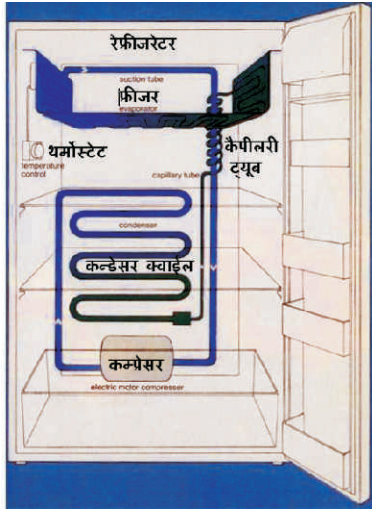 रेफ्रीजरेटर
suction tube
फ्रीजर
evaporator
थर्मोस्टेट
temperature
control
कैपीलरी
ट्यूब
capillary tube
condenser
कन्डेसर क्वाईल
कम्प्रेसर
electric motor compresser